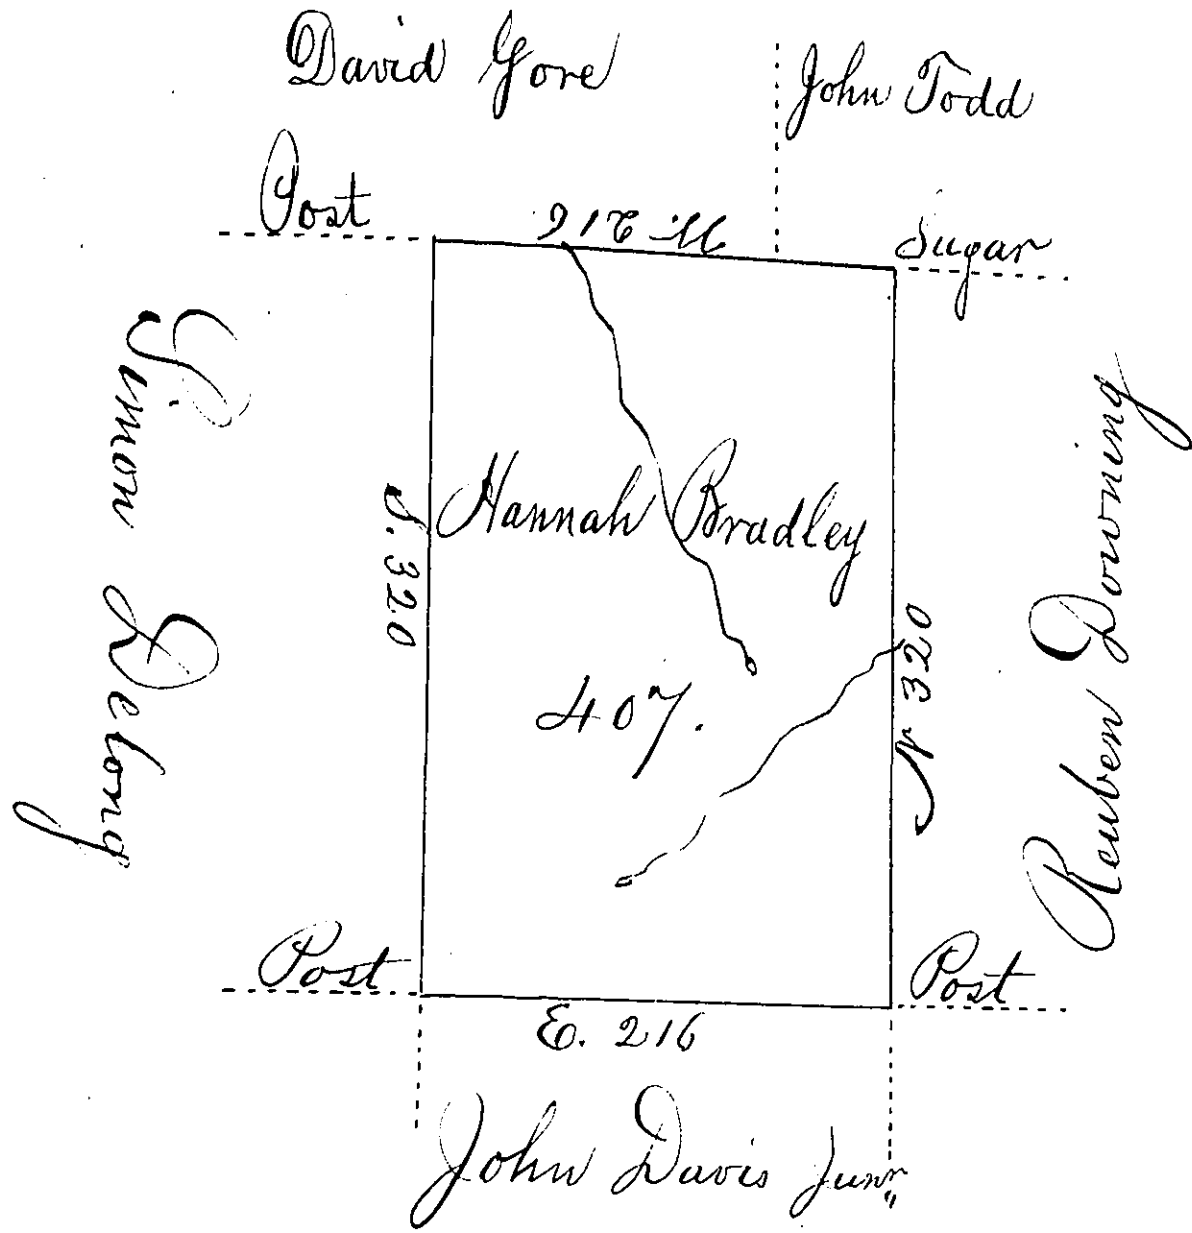 David Gore
John Todd
Post
W. 216
Sugar
Simon Delong
S. 320
Hannah Bradley
407.
N 320
Reuben Downing
Post
Post
E. 216
John Davis Junr